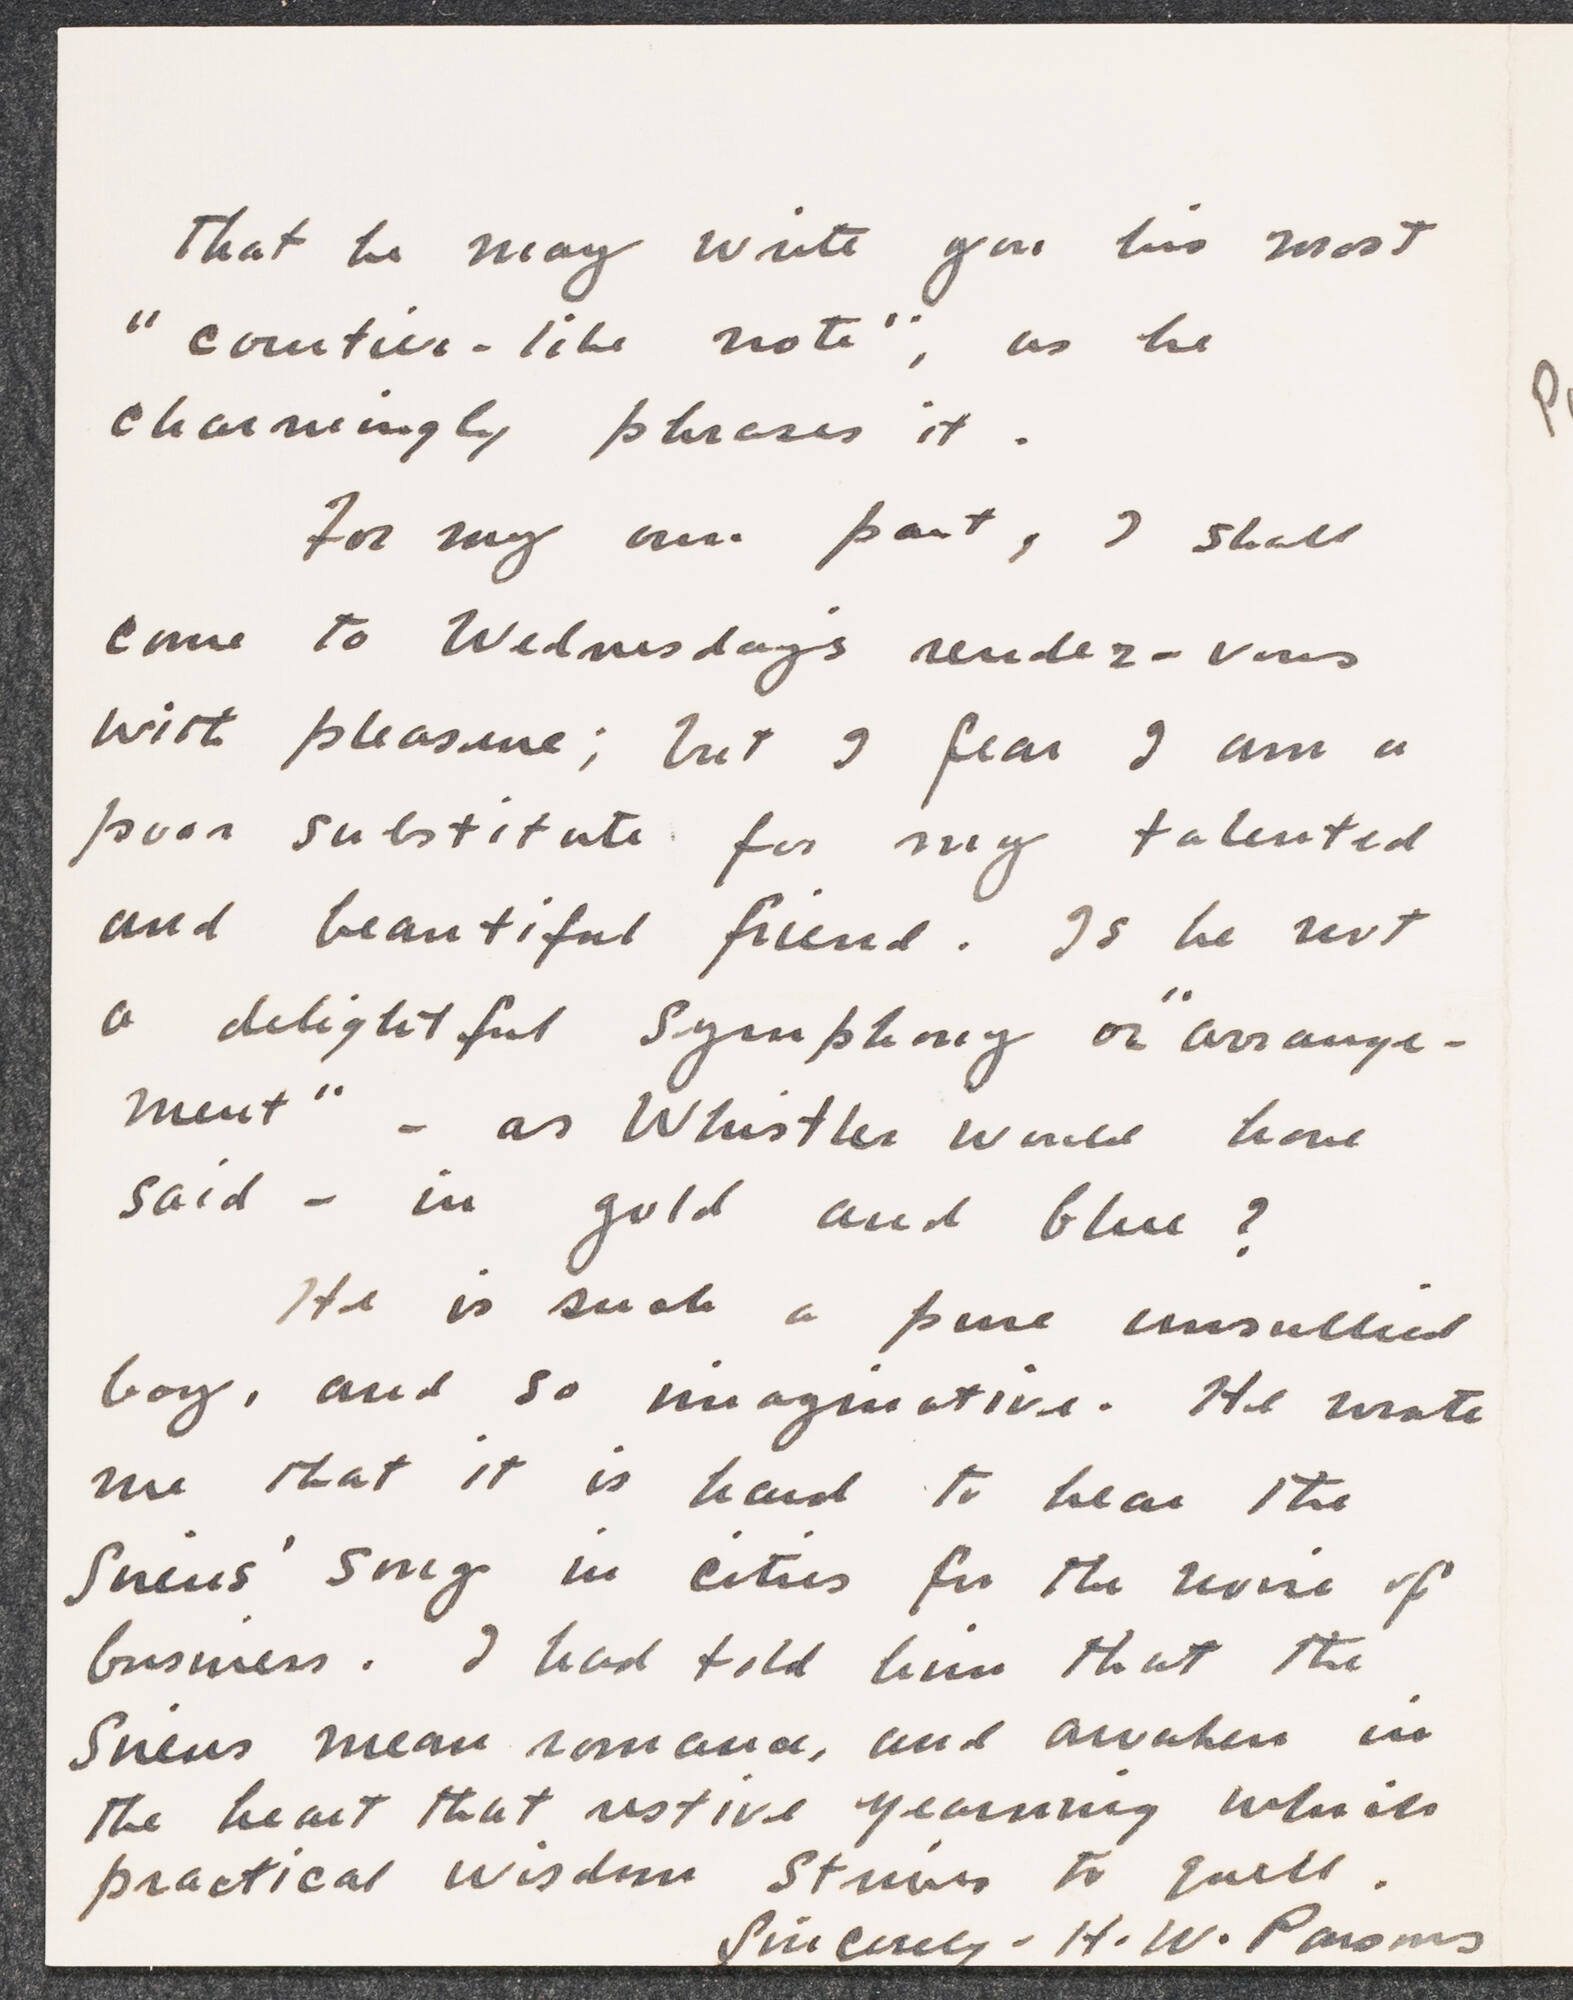 That he may write you his most
"courtier-like note", as he
charmingly phrases it.
For my own part, I shall
come to Wednesday's rendez-vous
with pleasure; but I fear I am a
poor substitute for my talented
and beautiful friend. Is he not
a delightful symphony or "arrange-
ment" - as Whistler would have
said - in gold and blue?
He is such a pure unsullied
boy, and so imaginative. He wrote
me that it is hard to hear the
Sirens' song in cities for the noise of
business. I had told him that the
Sirens mean romance, and awaken in
the heart that restive yearning which
practical wisdom strives to quell.
Sincerely - H. W. Parsons